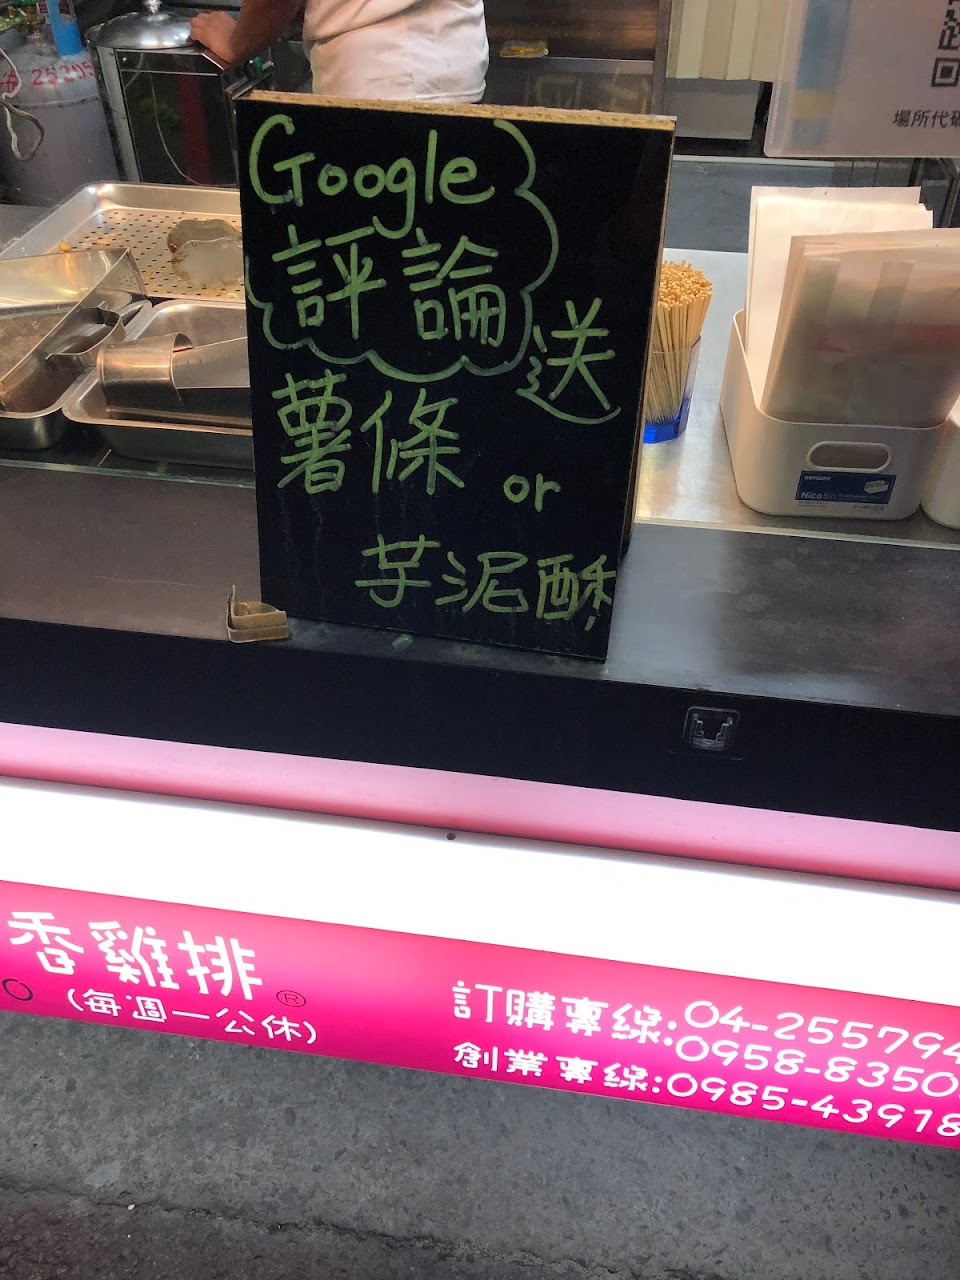 25295
場所代碼
Google
評論
送
薯條 or
芋泥酥
Nico
香雞排®
(每週一公休)
訂購專線:04-255794
0958-8350
創業專線:0985-43918